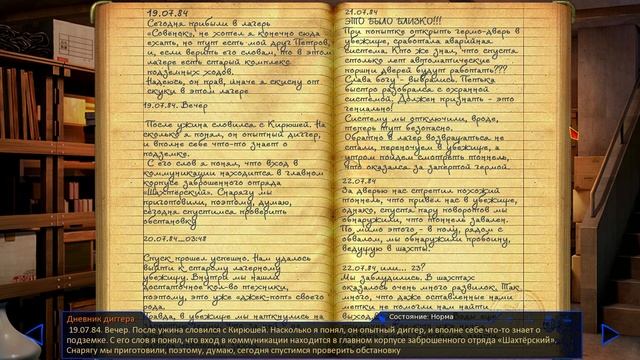 19.07.84
Сегодня прибыли в лагерь
«Совенок», не хотел я конечно сюда
ехать, но тут есть мой друг Петров,
и, если верить его словам, то в этом
лагере есть старый комплекс
подземных ходов.
Надеюсь, он прав, иначе я скисну от
скуки в этом лагере
19.07.84. Вечер
После ужина словился с Кирюшей. На
сколько я понял, он опытный диггер,
и вполне себе что-то знает о
подземке.
С его слов я понял, что вход в
коммуникации находится в главном
корпусе заброшенного отряда
«Шахтёрский». Снарягу мы
приготовили, поэтому, думаю,
сегодня спустимся проверить
обстановку
20.07.84_03:48
Спуск прошел успешно. Нам удалось
выйти к старому лагерному
убежищу. Внутри мы нашли
достаточное кол-во техники,
поэтому, это уже «джек-пот» своего
рода.
Правда, в убежище мы наткнулись на
21.07.84
ЭТО БЫЛО БЛИЗКО!!!
При попытке открыть гермо-дверь в
убежище, сработала аварийная
система. Кто же знал, что спустя
столько лет автоматические
поршни дверей будут работать???
Слава богу - выбрались. Петька
быстро разобрался с охранной
системой. Должен признать - это
гениально!
Систему мы отключили, вроде,
теперь тут безопасно.
Обратно в лагер возвращаться не
стали, переночуем в убежище, а
утром пойдем смотреть тоннель,
что оказался за запертой гермой.
22.07.84
За дверью нас встретил похожий
тоннель, что привел нас в убежище,
однако, спустя пару поворотов мы
обнаружили, что тоннель завален.
По мимо этого - в полу, рядом с
обвалом, мы обнаружили пробоину,
ведущую в шахты.
22.07.84 или... 23?
Мы заблудились. В шахтах
оказалось очень много развилок. Так
много, что даже оставленные нами
метки не помогли нам найти
Дневник диггера
Состояние: Норма
19.07.84. Вечер. После ужина словился с Кирюшей. Насколько я понял, он опытный диггер, и вполне себе что-то знает о
подземке. С его слов я понял, что вход в коммуникации находится в главном корпусе заброшенного отряда «Шахтёрский».
Снарягу мы приготовили, поэтому, думаю, сегодня спустимся проверить обстановку